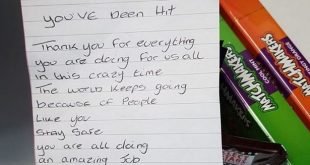 YOU'VE Been Hit
Thank you for everything
you are doing for us all
in this crazy time
The world keeps going
because of People
Like you
Stay Safe
you are all doing
an amazing Job
MATCHMAKERS
COOL MINT
MATCHMAKERS